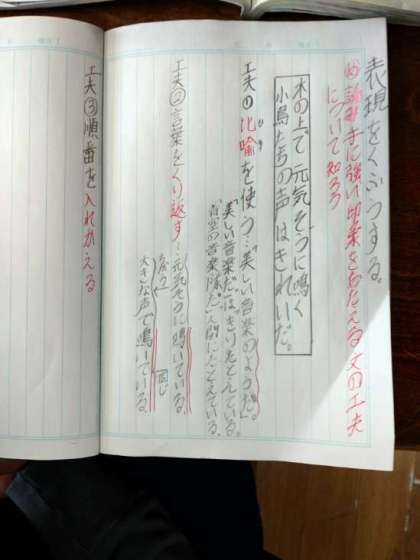 表現をくふうする。
め読み手に強い印象をあたえる文の工夫
について知ろう
木の上で元気そうに鳴く
小鳥たちの声はきれいだ。
工夫① 比喩を使う…美しい音楽のようだ。
ひ ゆ
美しい音楽だ。
青空の音楽隊だ。人間にたとえている。
工夫②言葉をくり返す…元気そうに鳴いている。
大きな声で鳴いている。
同じ
工夫③順番を入れかえる